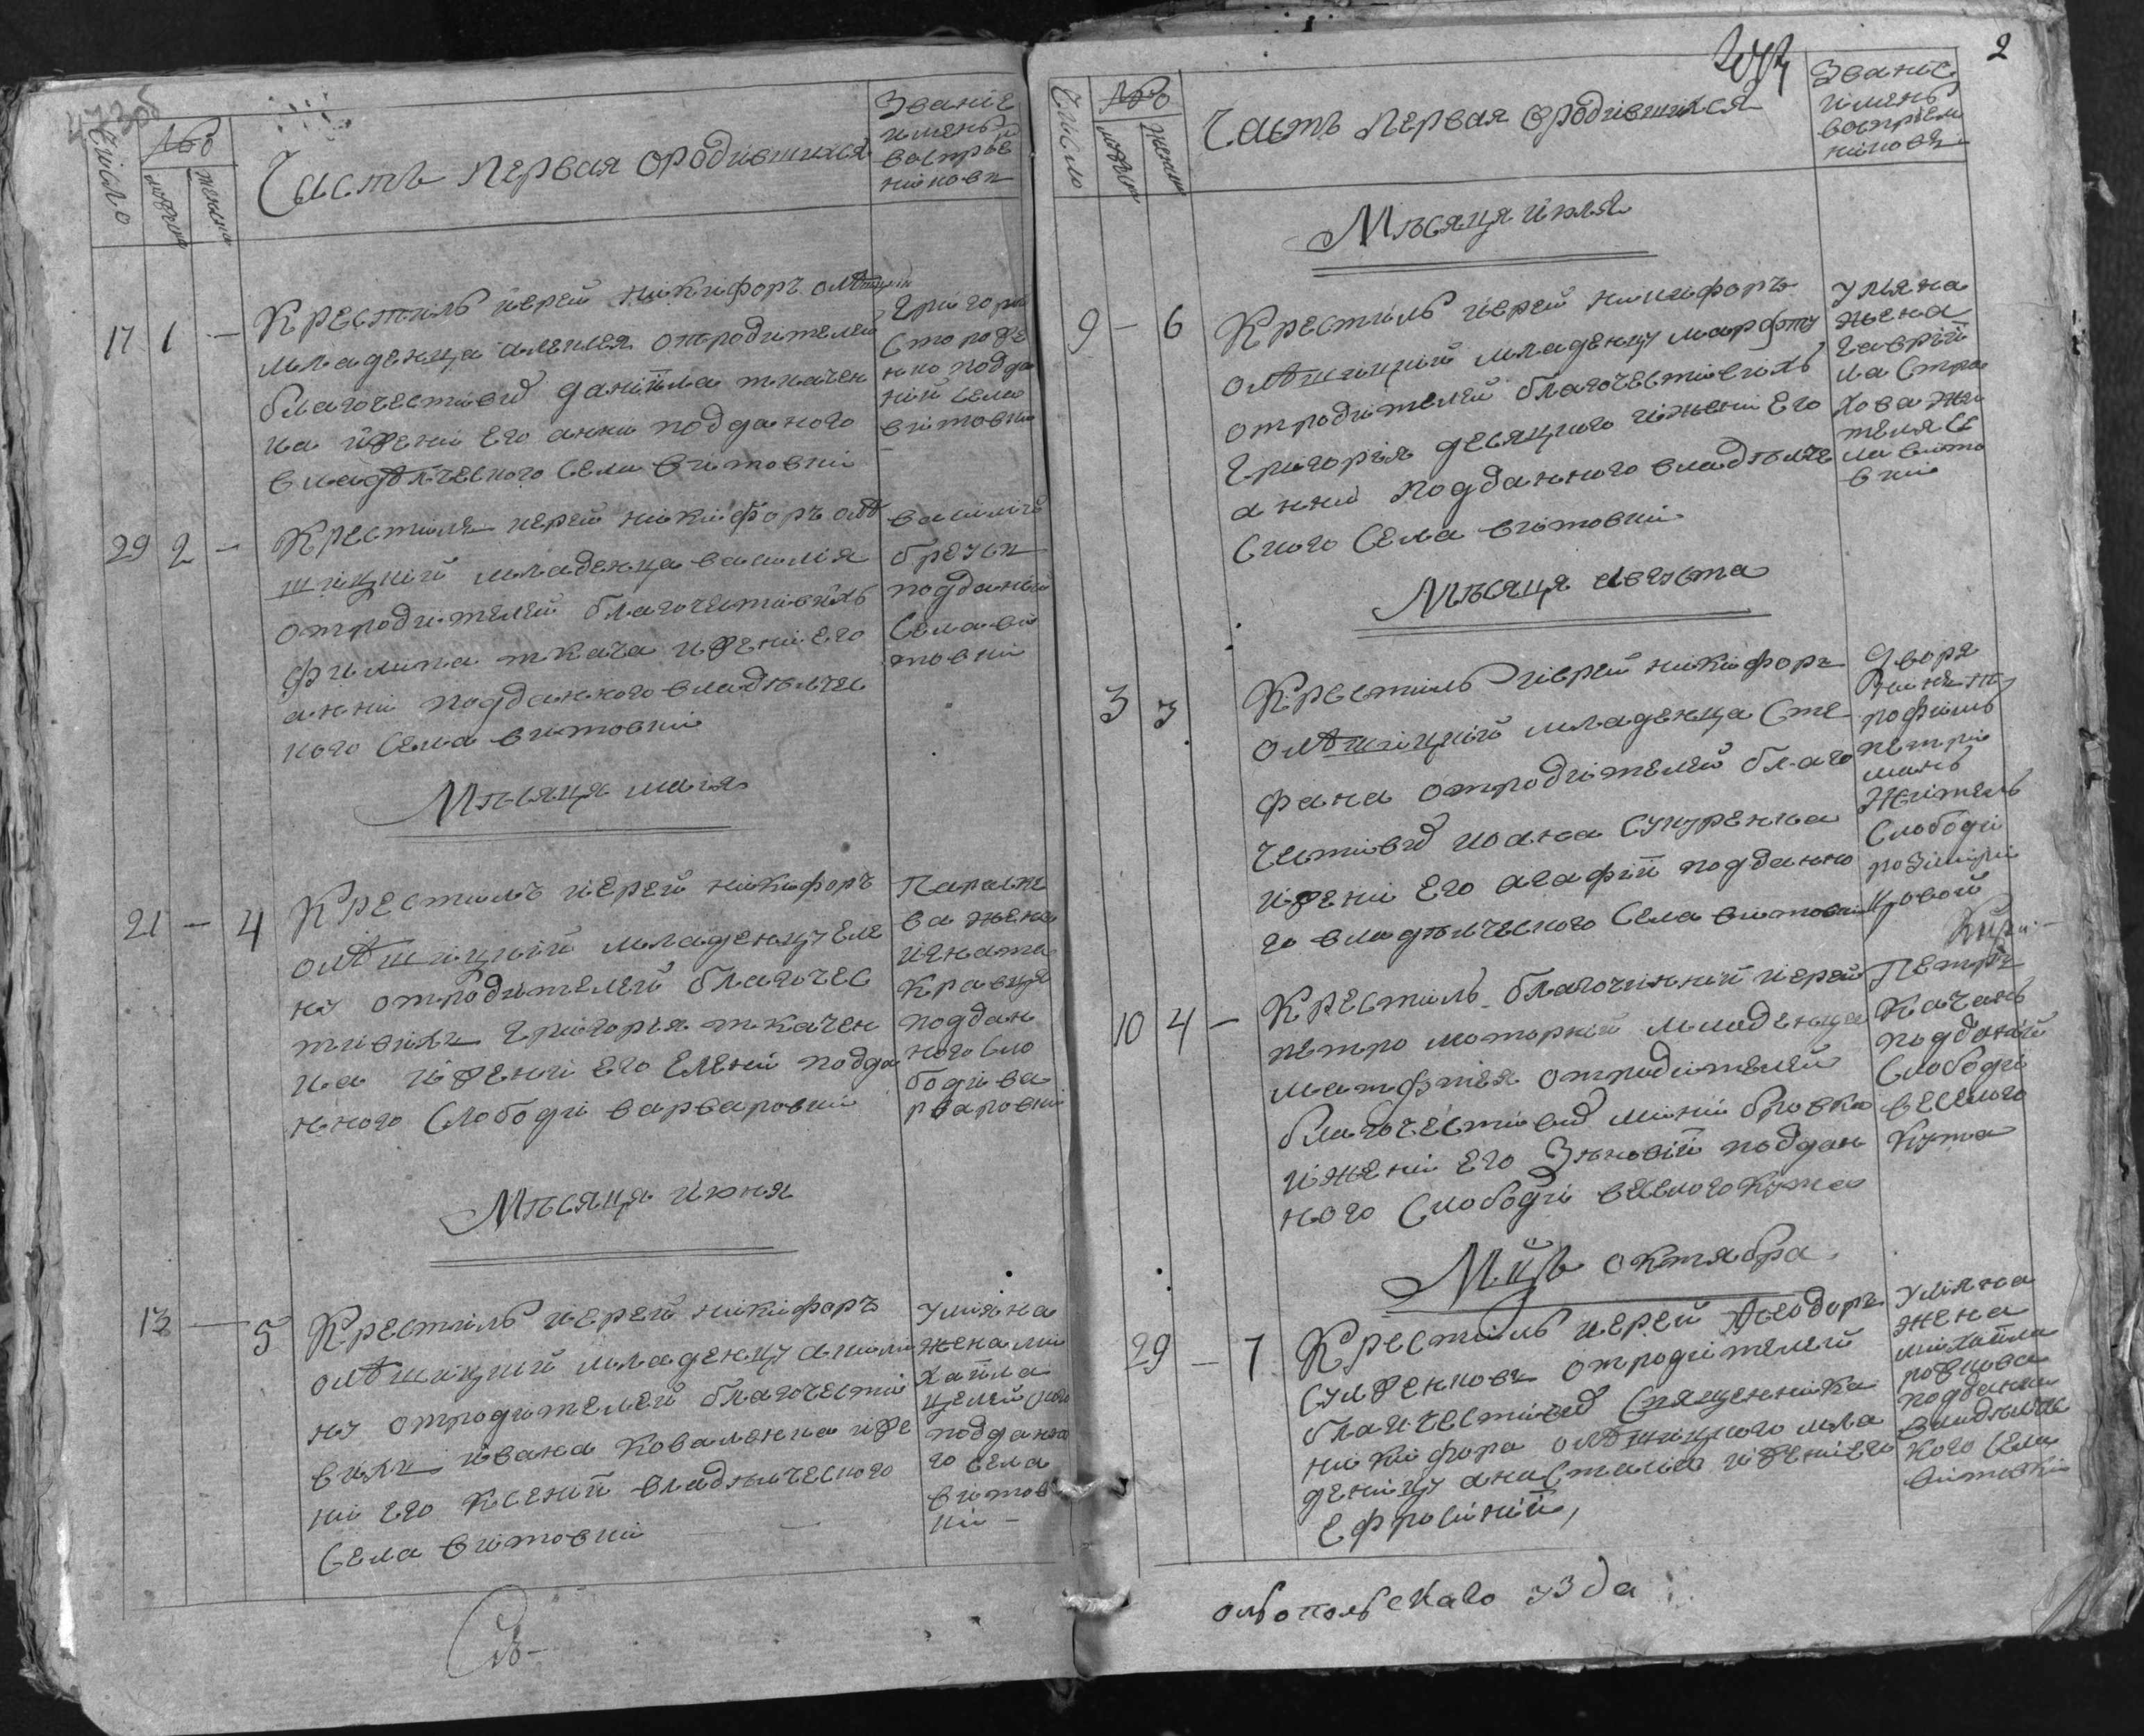 Число
№
мужска
женска
Часть Первая ородившихся
Звание
именъ
воспрїе
никовъ
17 1 —
Крестилъ иерей никифоръ
младенца отродителей
благочестивых данїила ткачен
ка ижени его анни подданого
владѣлческого села витовки
Григори
Стороже
нко подда
ній села
витовки
29 2 —
Крестилъ иерей никифоръ олѣ
шицкий младенца василїя
отродителей благочестивихъ
филипа ткача ижени его
анни подданного владѣлчес
кого села витовки
василій
подданий
Села ви
товки
Мѣсяця маія
21 — 4
Крестилъ иерей никифоръ
олѣшицкий младенцу еле
ну отродителей благочес
тивихъ григорїя ткачен
ка ижени его елени подда
нного Слободи варваровки
Параске
ва жена
игната
кравця
поддан
ного Сло
боди ва
рваровки
Мѣсяця июня
13 — 5
Крестилъ иерей никифоръ
олѣшицкий младенцу акили
ну отродителей благочести
вихъ ивана коваленка иже
ни его ксении владѣлческого
Села витовки
улияна
жена ми
хаила
подданно
го села
витов
ки —
2
Число
№
мужска
женска
Часть Первая ородившихся
Звание
именъ
воспрїем
никовъ
Мѣсяця июля
9 — 6
Крестилъ иерей никифоръ
олѣшицкий младенцу марфу
отродителей благочестивихъ
григорїя десяцкого ижени его
анни подданного владѣлче
ского Села витовки
улияна
жена
гаврїи
ла Стра
хова жи
теля Се
ла вито
вки
Мѣсяця августа
3 3
Крестилъ иерей никифоръ
олѣшицкий младенца Сте
фана отродителей благо
честивых иоана
ижени его агафїи поданно
го владѣлческого Села витовки
Дворя
нинъ т
рофимъ
петри
манъ
житель
Слободи
10 4 —
Крестилъ благочинний иерей
петро моторний младенца
матфея отродителей
благочестивых мини бровка
ижени его Зѣновїи поддан
ного Слободи веселого Кута
Петръ
Качанъ
подданій
Слободи
веселого
Кута
Мцъ октября
29 — 7
Крестилъ иерей Ѳеодоръ
отродителей
благочестивых Священника
никифора олѣшицкого мла
денцу анастасию ижени его
Ефросинии,
улияна
жена
михаила
подданна
владѣлчес
кого села
витовки
олвопольскаго узда